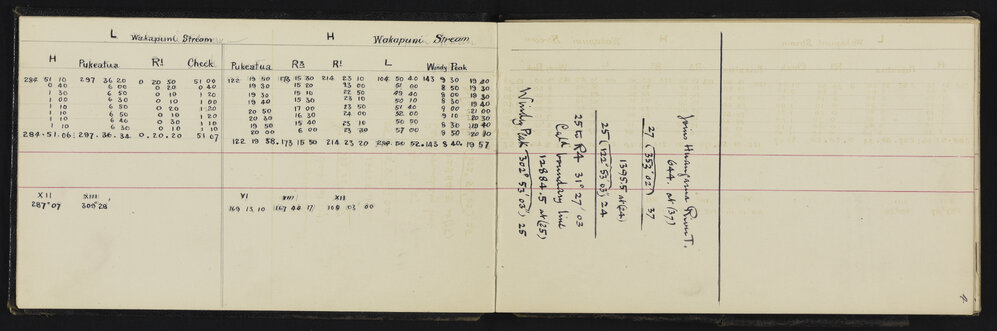 L Wakapuni Stream
H Pukeatua R1 Check
284 51 10 297 36 20 0 20 50 51 00
0 40 6 00 0 20 0 40
1 30 6 50 0 10 1 20
1 00 6 30 0 10 1 00
1 10 6 50 0 20 1 20
1 10 6 50 0 10 1 20
1 10 6 40 0 30 1 10
1 10 6 30 0 10 1 10
284.51.06 297.36.34 0.20.20 51 07
XII XIII
287°07 305°28'
H Wakapuni Stream
Pukeatua R3 R1 L Windy Peak
122 19 50 173 15 30 214 23 10 104 50 40 143 9 30 19 40
19 30 15 20 23 00 51 00 8 50 19 30
19 30 15 10 22 50 49 40 8 00 19 30
19 40 15 30 23 10 50 10 8 30 19 40
20 50 17 00 23 50 51 40 9 00 21 00
20 30 16 30 24 00 52 00 9 10 20 30
19 50 15 40 23 10 50 50 8 30 19 40
20 00 6 00 23 30 57 00 9 50 20 10
122 19 58.173 15 50 214 23 20 50 52.143 8 40.19 57
XI XII
169 13 10 167 44 17 109 03 00
Windy Peak 302° 53' 03" 25
12884.5 at (25)
Cath boundary line
25 to R4 31° 27' 03
25 (122° 53' 03") 24
13955 at (24)
27 (353° 02') 37
644. at (37)